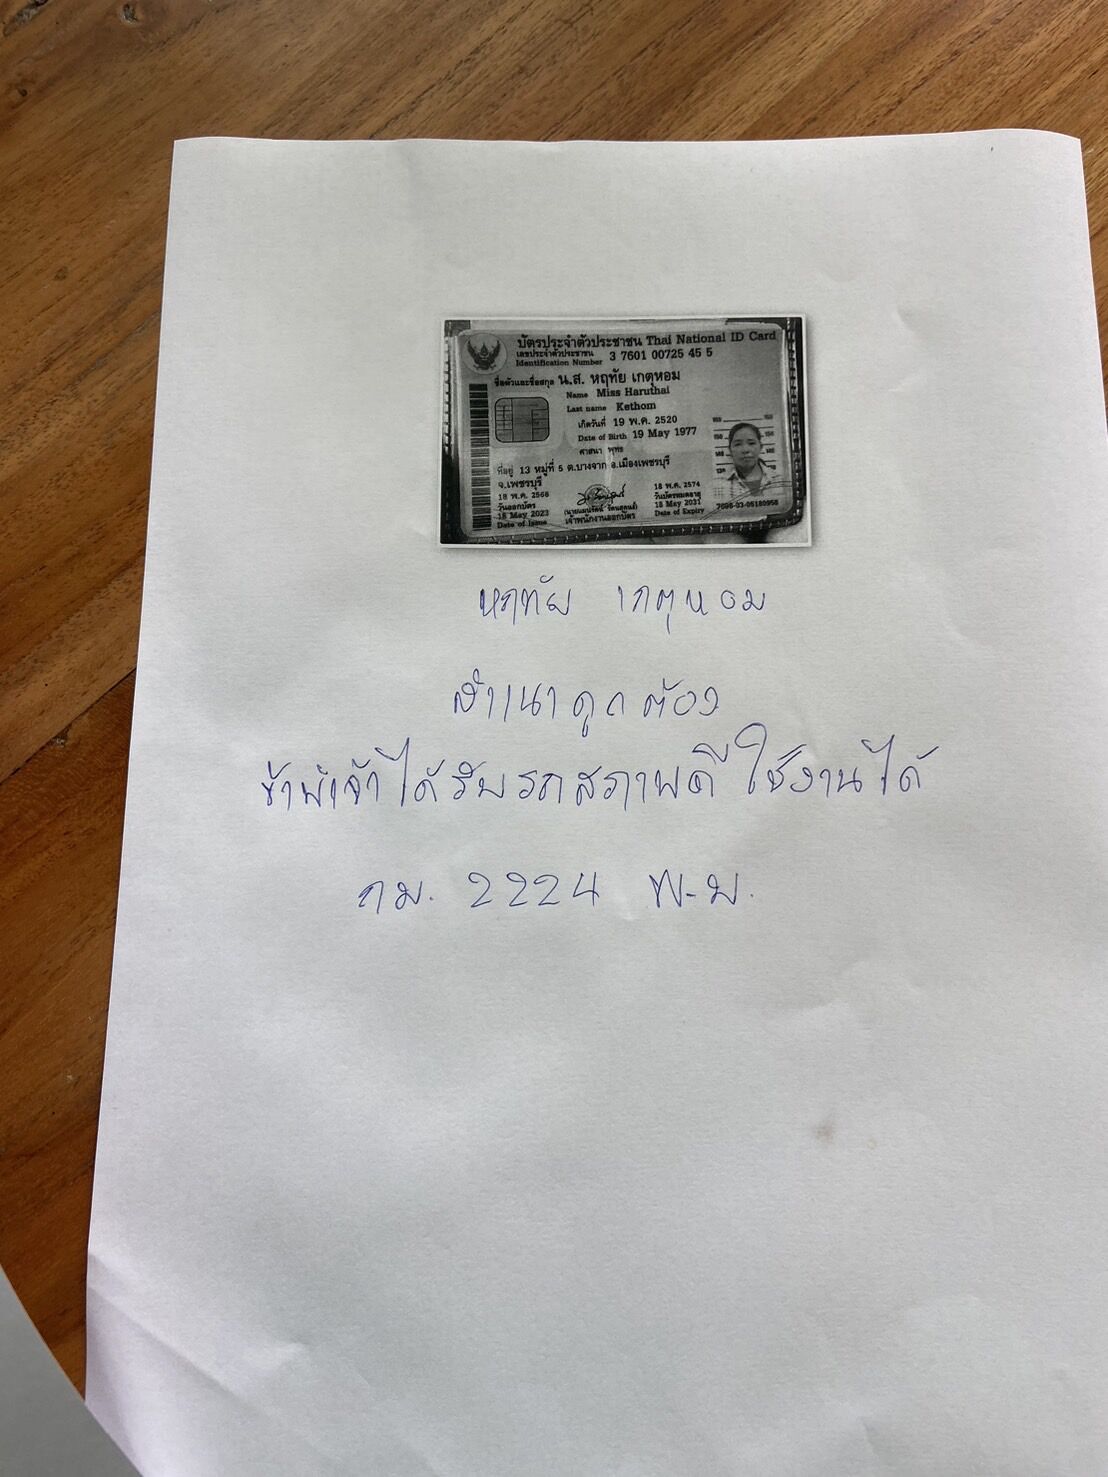 บัตรประจำตัวประชาชน Thai National ID Card
เลขประจำตัวประชาชน
Identification Number 3 7601 00725 45 5
ชื่อตัวและชื่อสกุล น.ส. หฤทัย เกตุหอม
Name Miss Haruthai
Last name Kethom
เกิดวันที่ 19 พ.ค. 2520
Date of Birth 19 May 1977
ศาสนา พุทธ
ที่อยู่ 13 หมู่ที่ 5 ต.บางจาก อ.เมืองเพชรบุรี
จ.เพชรบุรี
18 พ.ค. 2566
วันออกบัตร
18 May 2023
Date of Issue
เจ้าพนักงานออกบัตร
18 พ.ค. 2574
วันบัตรหมดอายุ
18 May 2031
Date of Expiry
หฤทัย เกตุหอม
สำเนาถูกต้อง
ข้าพเจ้าได้รับรถสภาพดี ใช้งานได้
กม. 2224 พ.บ.